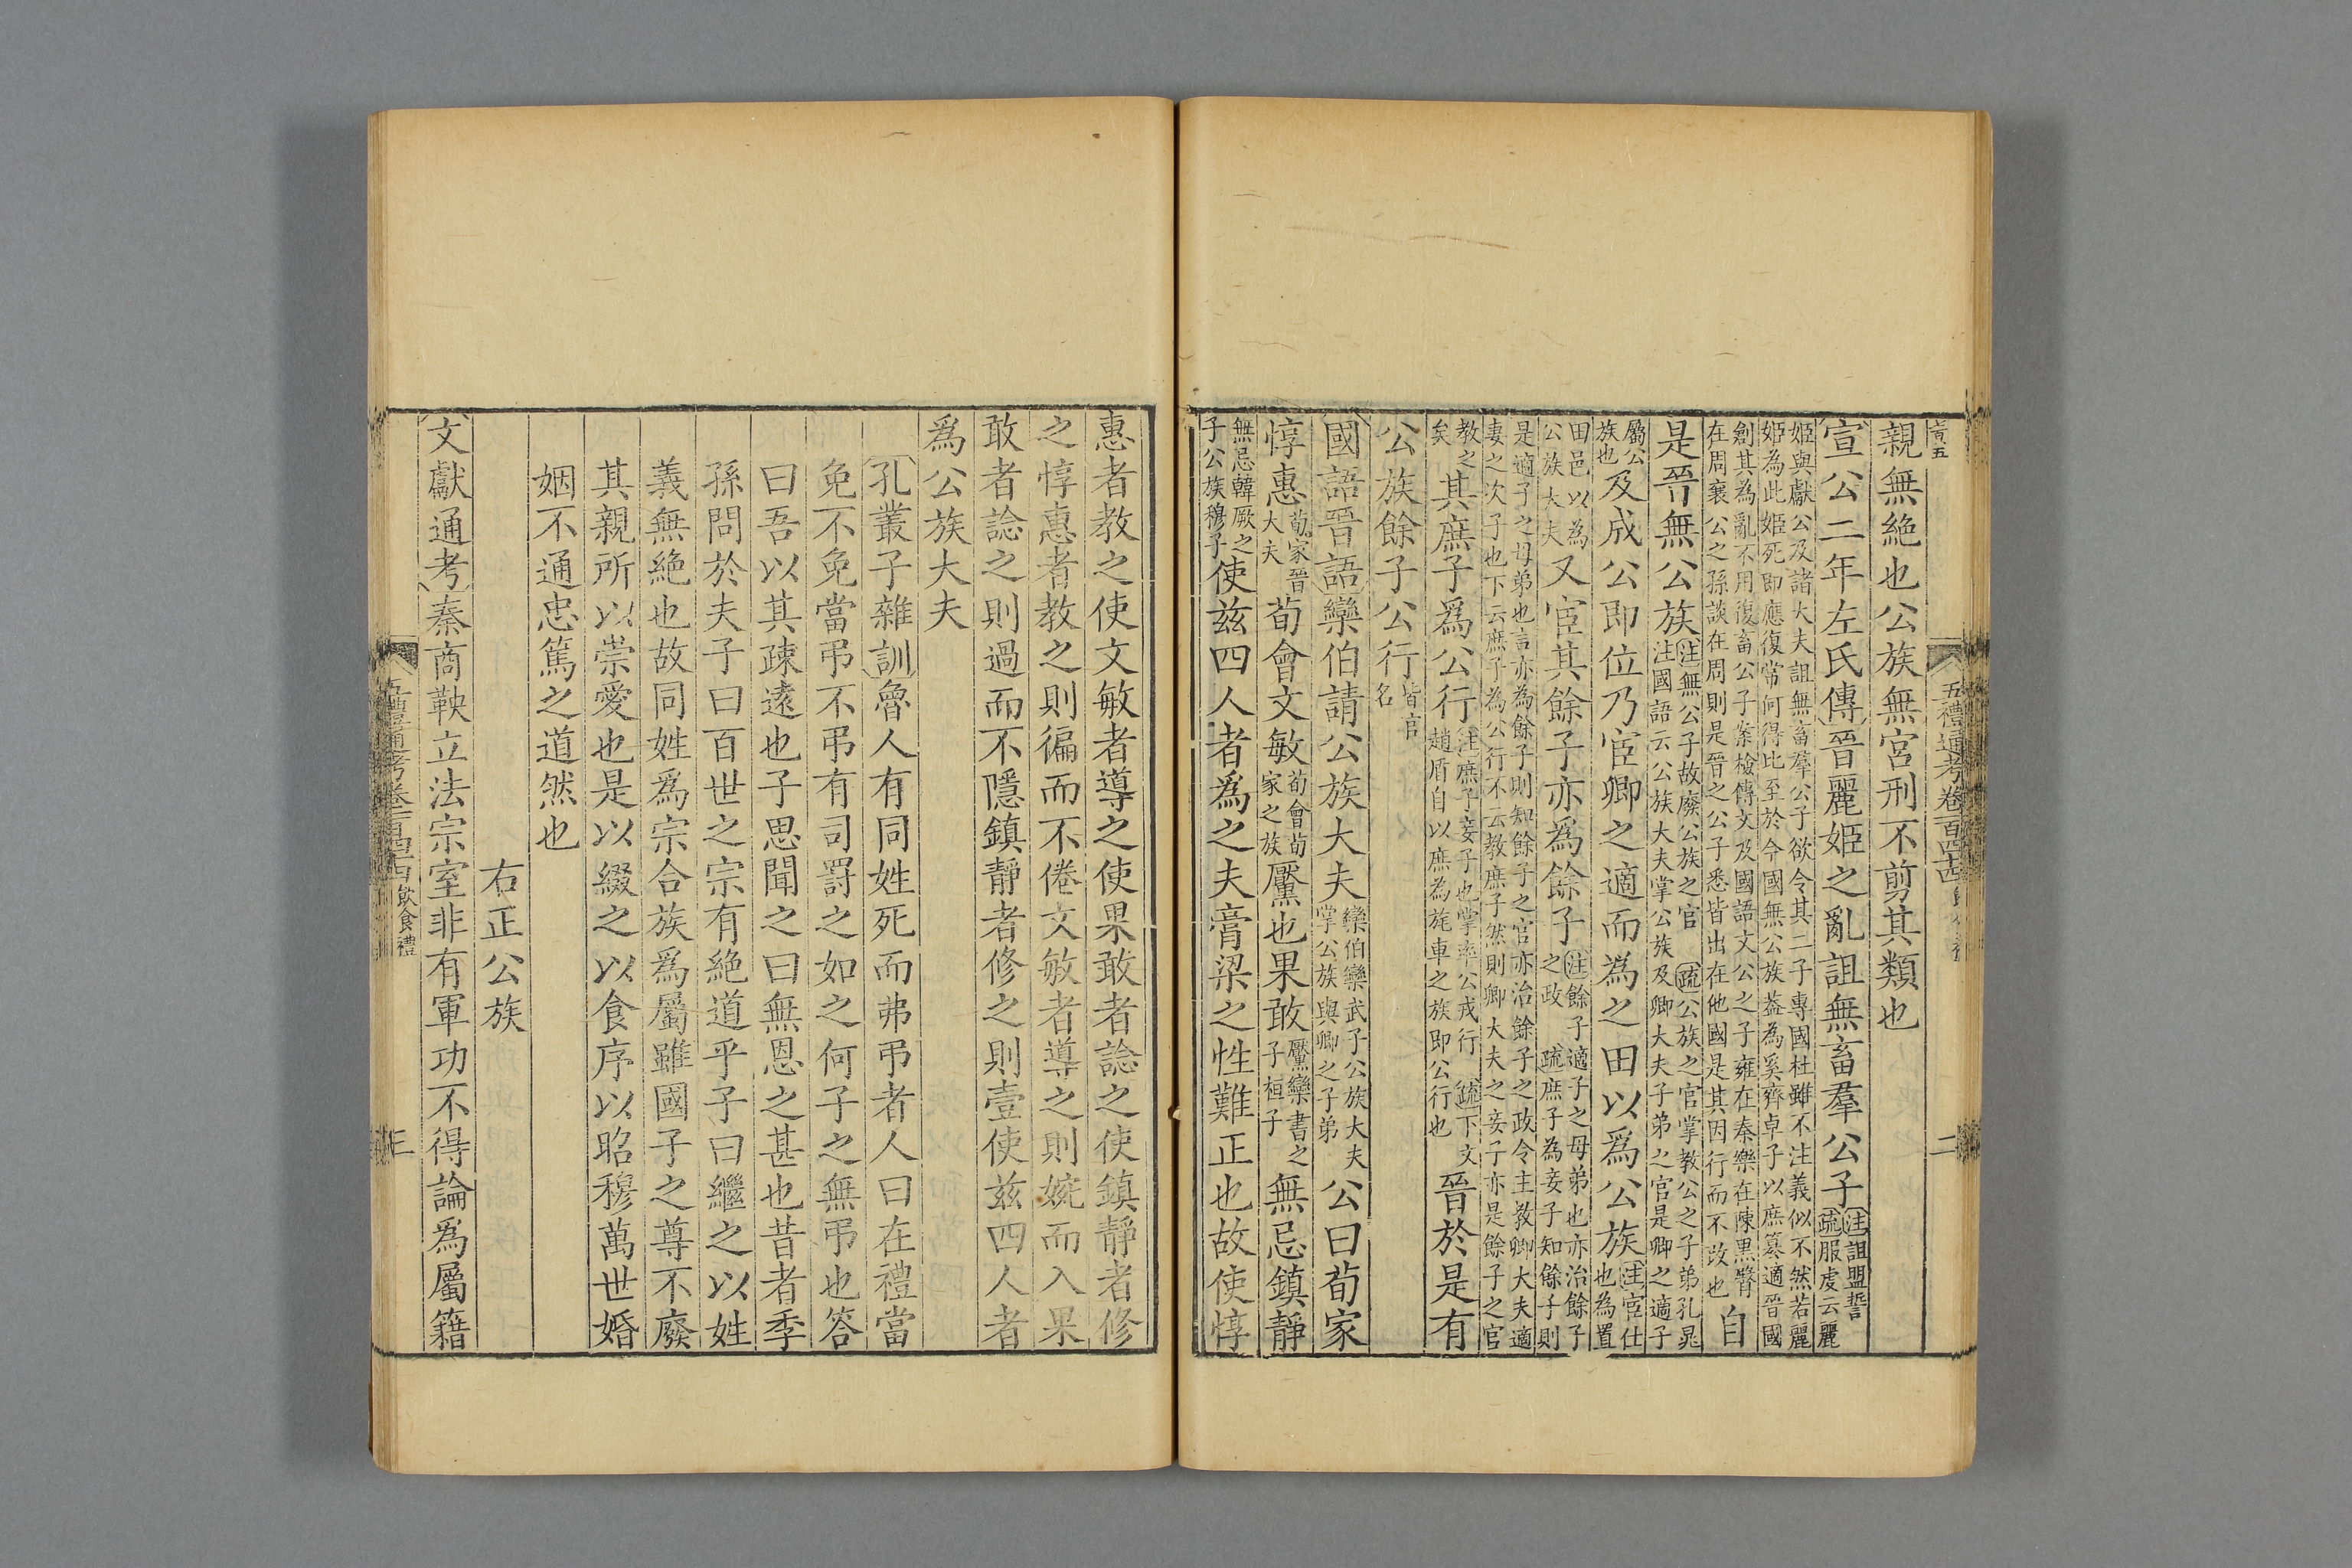 五禮通考卷一百四十四
二
親無絶也公族無宮刑不剪其類也
宣公二年左氏傳晉麗姬之亂詛無畜羣公子
注詛盟誓
疏服虔云麗
姬與獻公及諸大夫詛無畜羣公子欲令其二子專國杜雖不注義似不然若麗
姬為此姬死即應復常何得比至於今國無公族葢為奚齊卓子以庶簒適晉國
創其為亂不用復畜公子案檢傳文及國語文公之子雍在秦樂在陳黑臀
在周襄公之孫談在周則是晉之公子悉皆出在他國是其因行而不改也
自
是晉無公族
注無公子故廢公族之官 疏公族之官掌教公之子弟孔晁
注國語云公族大夫掌公族及卿大夫子弟之官是卿之適子
屬公
族也
及成公即位乃宦卿之適而為之田以爲公族
注宦仕
也為置
田邑以為
公族大夫
又宦其餘子亦爲餘子
注餘子適子之母弟也亦治餘子
之政 疏庶子為妾子知餘子則
是適子之母弟也言亦為餘子則知餘子之官亦治餘子之政令主教卿大夫適
妻之次子也下云庶子為公行不云教庶子然則卿大夫之妾子亦是餘子之官
教之
矣
其庶子爲公行
注庶子妾子也掌率公戎行 疏下文
趙盾自以庶為旄車之族即公行也
晉於是有
公族餘子公行
皆官
名
國語晉語欒伯請公族大夫
欒伯欒武子公族大夫
掌公族與卿之子弟
公曰荀家
惇惠
荀家晉
大夫
荀會文敏
荀會荀
家之族
黶也果敢
黶欒書之
子桓子
無忌鎮靜
無忌韓厥之
子公族穆子
使兹四人者為之夫膏粱之性難正也故使惇
惠者教之使文敏者導之使果敢者諗之使鎮靜者修
之惇惠者教之則徧而不倦文敏者導之則婉而入果
敢者諗之則過而不隱鎮靜者修之則壹使兹四人者
爲公族大夫
孔叢子雜訓魯人有同姓死而弗弔者人曰在禮當
免不免當弔不弔有司罸之如之何子之無弔也答
曰吾以其疎遠也子思聞之曰無恩之甚也昔者季
孫問於夫子曰百世之宗有絶道乎子曰繼之以姓
義無絶也故同姓爲宗合族爲屬雖國子之尊不廢
其親所以崇愛也是以綴之以食序以昭穆萬世婚
姻不通忠篤之道然也
右正公族
文獻通考秦商鞅立法宗室非有軍功不得論爲屬籍
五禮通考卷一百四十四 飲食禮
三